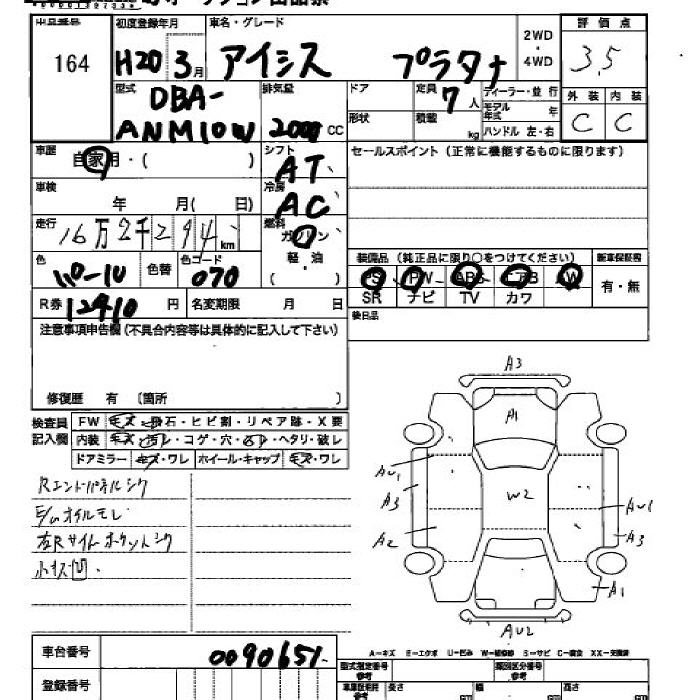 出品番号
164
初度登録年月
H20 3月
車名・グレード
アイシス プラタナ
2WD
・
4WD
評価点
3.5
外装 内装
C C
型式
DBA-
ANM10W
排気量
2000 CC
ドア
形状
定員
7人
積載
kg
ディーラー・並行
モデル年式 年
ハンドル 左・右
車歴
自家用・( )
シフト
AT
セールスポイント(正常に機能するものに限ります)
車検
年 月( 日)
冷房
AC
走行
16万2千294km
燃料
ガソリン
軽・油
色
色替
色コード
070
R券
12410円
名変期限 月 日
装備品(純正品に限り○をつけてください)
新車保証書
PS PW ABS エアB AW
SR ナビ TV カワ
有・無
後日品
注意事項申告欄(不具合内容等は具体的に記入して下さい)
修復歴 有 (箇所 )
検査員
記入欄
FW キズ・飛石・ヒビ割・リペア跡・X要
内装 キズ・汚レ・コゲ・穴・ ・ヘタリ・破レ
ドアミラー キズ・ワレ ホイール・キャップ キズ・ワレ
Rエンドパネルシク
E/Gオイルモレ
小キズ凹
A3
A1
AU1
A3
W2
A2
AU1
A3
A1
AU2
A-キズ E-エクボ U-凹み W-補修跡 S-サビ C-腐食 XX-交換済
車台番号
0090651
登録番号
型式指定番号
参考
類別区分番号
参考
長さ
幅
高さ